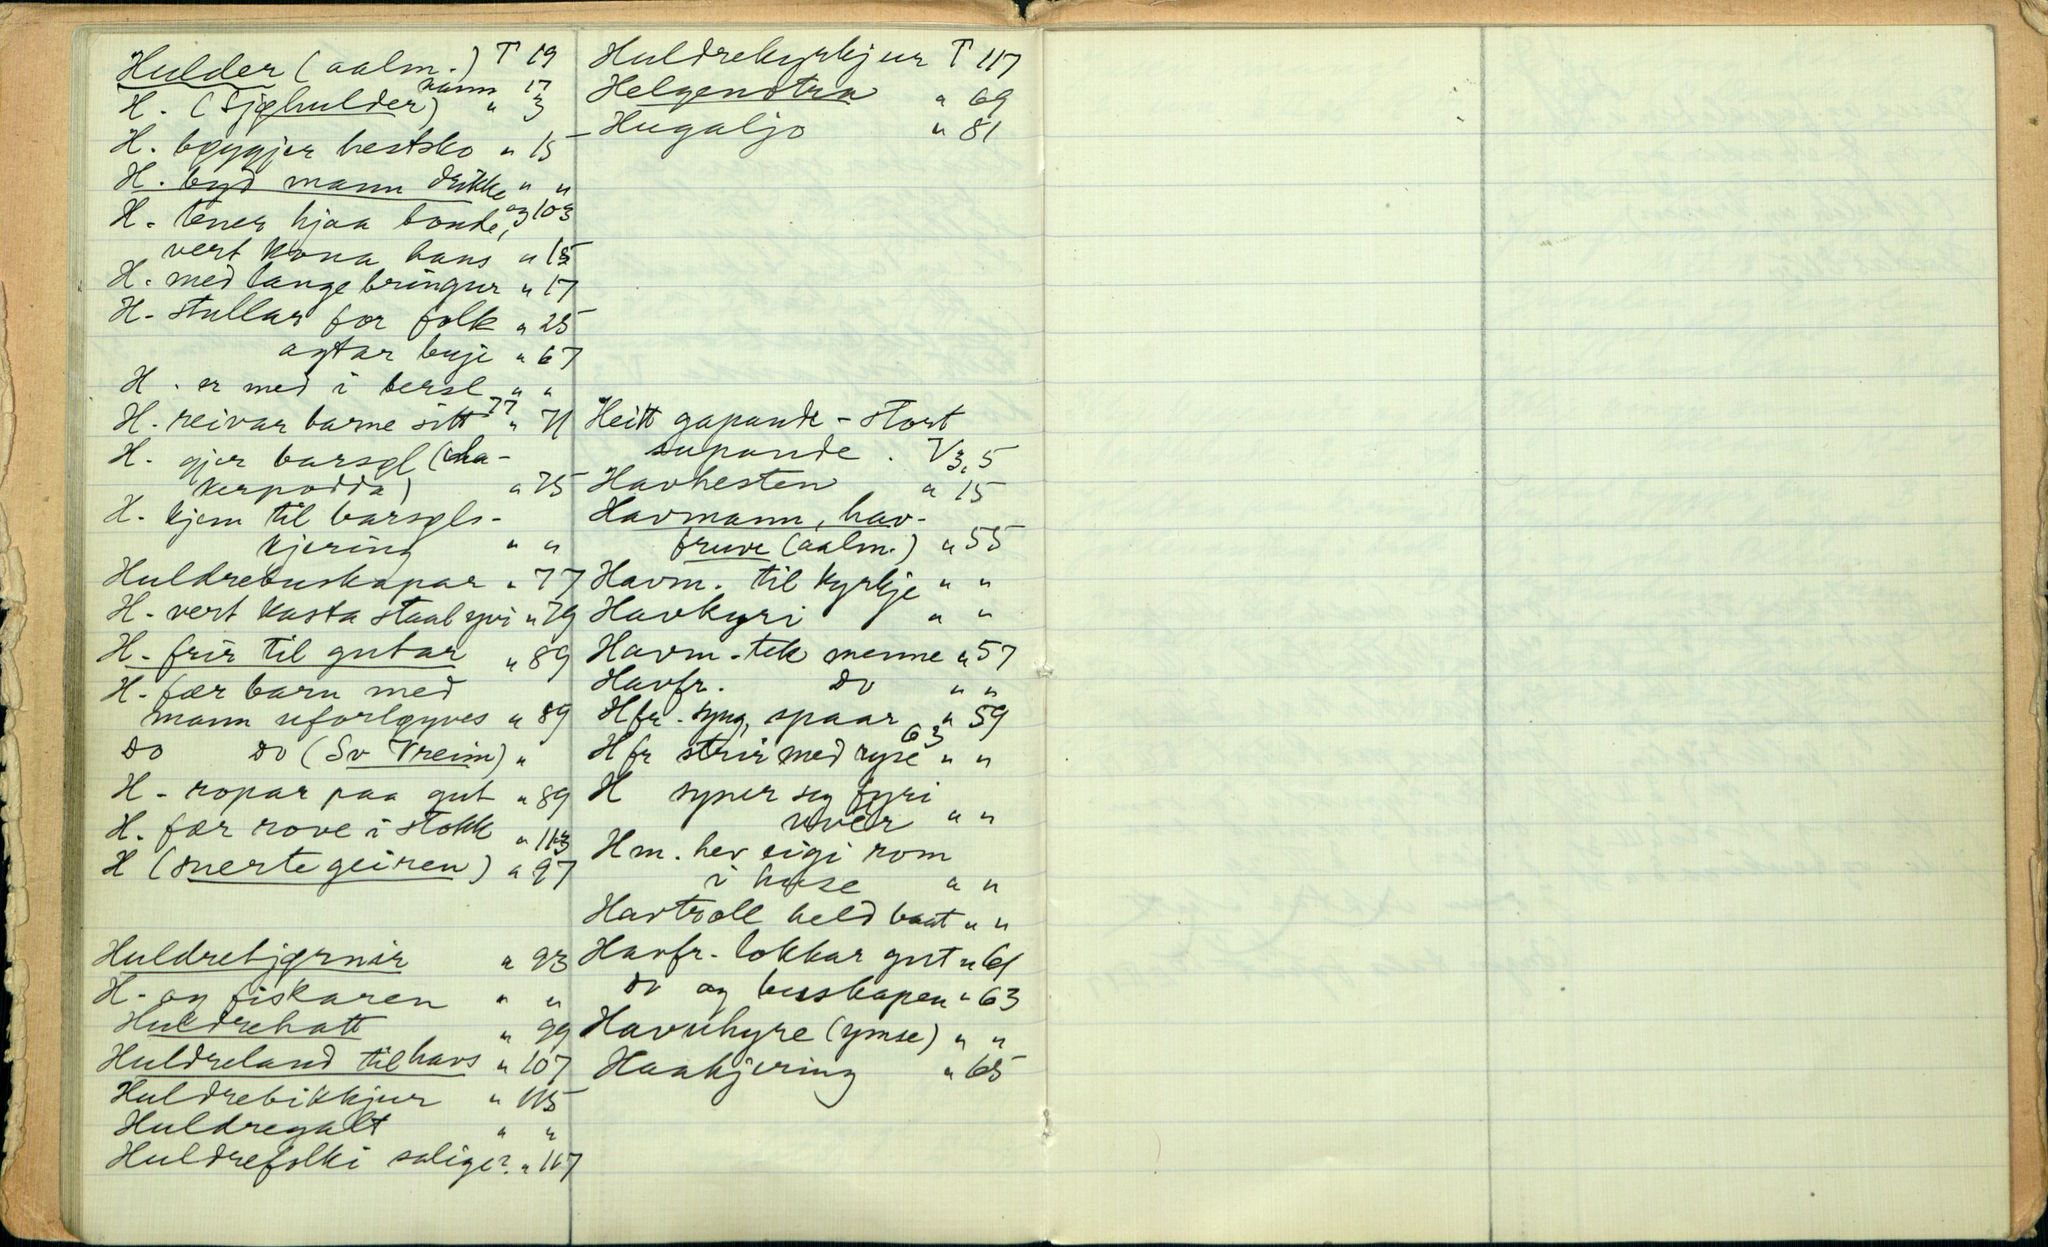 Hulder (aalm.) T 19
namn 17
H. (Sjøhulder) " 3
H. bøygjer hestsko " 15
H. byd mann drikke " "
H. tener hjaa bonde, og 103
vert kona hans " 15
H. med lange bringur " 17
H. stullar for folk " 25
agtar buji " 67
H. er med i bersl " "
77
H. reivar barne sitt " 71
H. gjer barsøl
kerpodda) " 75
H. kjem til barsøls-
kjering " "
Huldrebuskapar " 77
H. vert kasta staal yvi " 79
H. frir til gutar " 89
H. fær barn med
mann uforløyves " 89
Do Do (Sv Vreim) "
H. ropar paa gut " 89
H. fær rove i stokk " 113
H (Snertegeiren) " 97
Huldrebjørnir " 93
H. og fiskaren " "
Huldrehatt " 99
Huldreland tilhavs " 107
Huldrebikkjur " 115
Huldregalt " "
Huldrefolki salige? " 117
Huldrekyrkjur T 117
Helgenotra " 69
Hugaljo " 81
Heitt gapande - stort
supande . V3, 5
Havhesten " 15
Havmann, hav-
fruve (aalm.) " 55
Havm. til kyrkje " "
Havkyri " "
Havm. tek menne " 57
Havfr. Do " "
Hfr. syng, spaar " 59
63
Hfr strir med ryse " "
H syner seg fyri
uver " "
Hm. hev eigi rom
i huse " "
Havtroll held baat " "
Havfr. lokkar gut " 61
do og buskapen " 63
Havuhyre (ymse) " "
Haakjering " 65